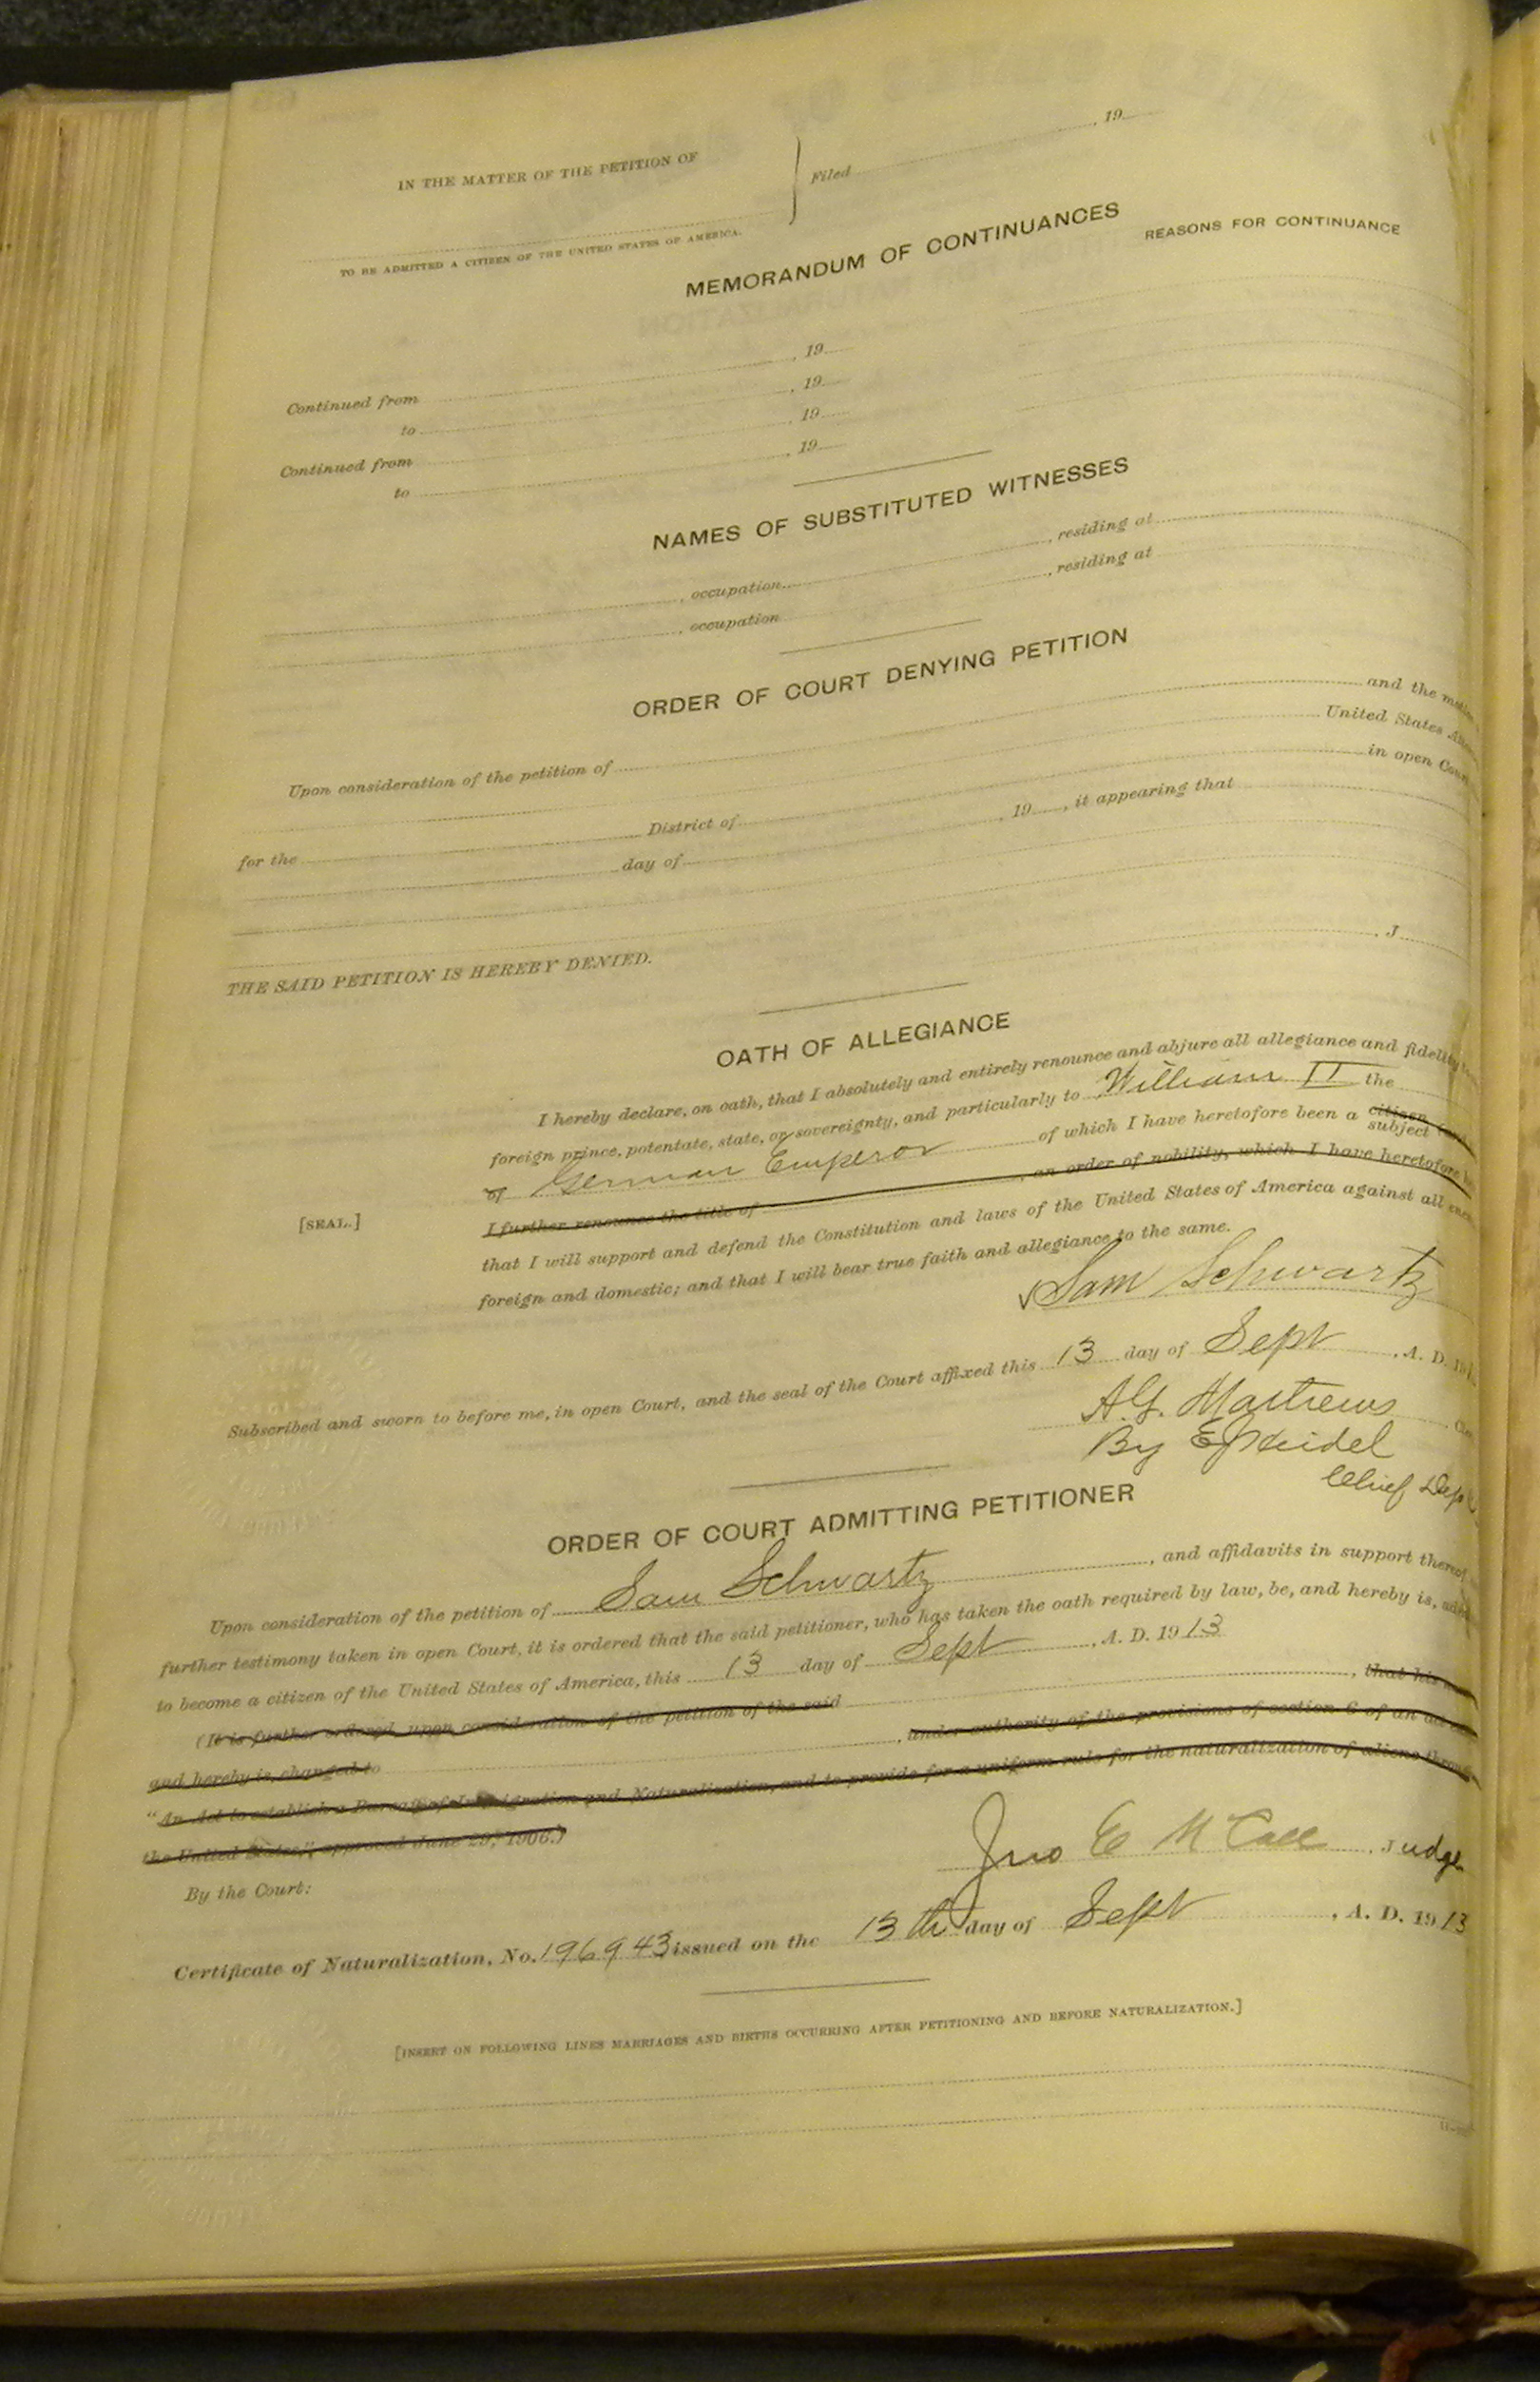 IN THE MATTER OF THE PETITION OF
Filed , 19
TO BE ADMITTED A CITIZEN OF THE UNITED STATES OF AMERICA.
MEMORANDUM OF CONTINUANCES
REASONS FOR CONTINUANCE
Continued from , 19
to , 19
Continued from , 19
to , 19
NAMES OF SUBSTITUTED WITNESSES
, occupation , residing at
, occupation , residing at
ORDER OF COURT DENYING PETITION
Upon consideration of the petition of and the
United States
for the District of in open
day of , 19 , it appearing that
THE SAID PETITION IS HEREBY DENIED.
, J
OATH OF ALLEGIANCE
I hereby declare, on oath, that I absolutely and entirely renounce and abjure all allegiance and fidelity
foreign prince, potentate, state, or sovereignty, and particularly to William II the
of German Emperor of which I have heretofore been a citizen subject
I further renounce the title of , an order of nobility, which I have heretofore
[SEAL.]
that I will support and defend the Constitution and laws of the United States of America against all
foreign and domestic; and that I will bear true faith and allegiance to the same.
Sam Schwartz
Subscribed and sworn to before me, in open Court, and the seal of the Court affixed this 13 day of Sept , A. D.
A.G. Matthews
By
Chief
ORDER OF COURT ADMITTING PETITIONER
Upon consideration of the petition of Sam Schwartz , and affidavits in support
further testimony taken in open Court, it is ordered that the said petitioner, who has taken the oath required by law, be, and hereby is,
to become a citizen of the United States of America, this 13 day of Sept , A. D. 1913
(It is further ordered, upon consideration of the petition of the said , that his
and hereby is, changed to , under authority of the provisions of section 6 of an
"An Act to establish a Bureau of Immigration and Naturalization, and to provide for a uniform rule for the naturalization of aliens
the United States," approved June 29, 1906.)
By the Court:
Jno E McCall , Judge
Certificate of Naturalization, No. 196943 issued on the 13th day of Sept , A. D. 1913
[INSERT ON FOLLOWING LINES MARRIAGES AND BIRTHS OCCURRING AFTER PETITIONING AND BEFORE NATURALIZATION.]